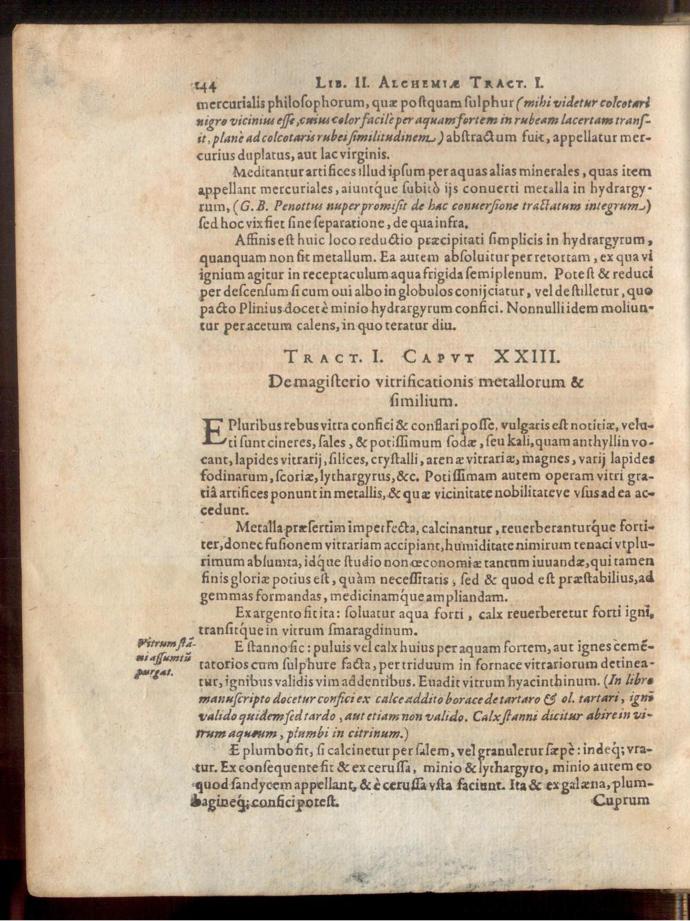 144 LIB. II. ALCHEMIÆ TRACT. I.
mercurialis philoſophorum, quæ poſtquam ſulphur (mihi videtur colcotari
nigro vicinius eſſe, cuius color facilè per aquam fortem in rubeam lacertam tranſ-
it, planè ad colcotaris rubei ſimilitudinem) abſtractum fuit, appellatur mer-
curius duplatus, aut lac virginis.
Meditantur artifices illud ipſum per aquas alias minerales, quas item
appellant mercuriales, aiuntq́ue ſubitò ijs conuerti metalla in hydrargy-
rum, (G. B. Penottus nuper promiſit de hac conuerſione tractatum integrum)
ſed hoc vix fiet ſine ſeparatione, de qua infra.
Affinis eſt huic loco reductio præcipitati ſimplicis in hydrargyrum,
quanquam non ſit metallum. Ea autem abſoluitur per retortam, ex qua vi
ignium agitur in receptaculum aqua frigida ſemiplenum. Poteſt & reduci
per deſcenſum ſi cum oui albo in globulos conijciatur, vel deſtilletur, quo
pacto Plinius docet è minio hydrargyrum confici. Nonnulli idem moliun-
tur per acetum calens, in quo teratur diu.
TRACT. I. CAPVT XXIII.
De magiſterio vitrificationis metallorum &
ſimilium.
E Pluribus rebus vitra confici & conflari poſſe, vulgaris eſt notitiæ, velu-
ti ſunt cineres, ſales, & potiſſimum ſodæ, ſeu kali, quam anthyllin vo-
cant, lapides vitrarij, ſilices, cryſtalli, arenæ vitrariæ, magnes, varij lapides
fodinarum, ſcoriæ, lythargyrus, &c. Potiſſimam autem operam vitri gra-
tiâ artifices ponunt in metallis, & quæ vicinitate nobilitateve vſus ad ea ac-
cedunt.
Metalla præſertim imperfecta, calcinantur, reuerberanturq́ue forti-
ter, donec fuſionem vitrariam accipiant, humiditate nimirum tenaci vtplu-
rimum abſumta, idq́ue ſtudio non œconomiæ tantum iuuandæ, qui tamen
finis gloriæ potius eſt, quàm neceſſitatis, ſed & quod eſt præſtabilius, ad
gemmas formandas, medicinamq́ue ampliandam.
Ex argento fit ita: ſoluatur aqua forti, calx reuerberetur forti igni,
tranſitq́ue in vitrum ſmaragdinum.
Vitrum ſtã-
ni aſſumtũ
purgat.
E ſtanno ſic: puluis vel calx huius per aquam fortem, aut ignes cemẽ-
tatorios cum ſulphure facta, per triduum in fornace vitrariorum detinea-
tur, ignibus validis vim addentibus. Euadit vitrum hyacinthinum. (In libro
manuſcripto docetur confici ex calce addito borace de tartaro & ol. tartari, igni
valido quidem ſed tardo, aut etiam non valido. Calx ſtanni dicitur abire in vi-
trum aqueum, plumbi in citrinum.)
E plumbo fit, ſi calcinetur per ſalem, vel granuletur ſæpè: indeq́; vra-
tur. Ex conſequente fit & ex ceruſſa, minio & lythargyro, minio autem eo
quod ſandycem appellant, & è ceruſſa vſta faciunt. Ita & ex galæna, plum-
bagineq́; confici poteſt. Cuprum